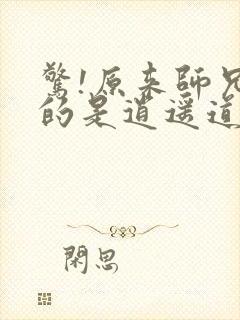 驚!原來師兄
的是逍遥道
閑思